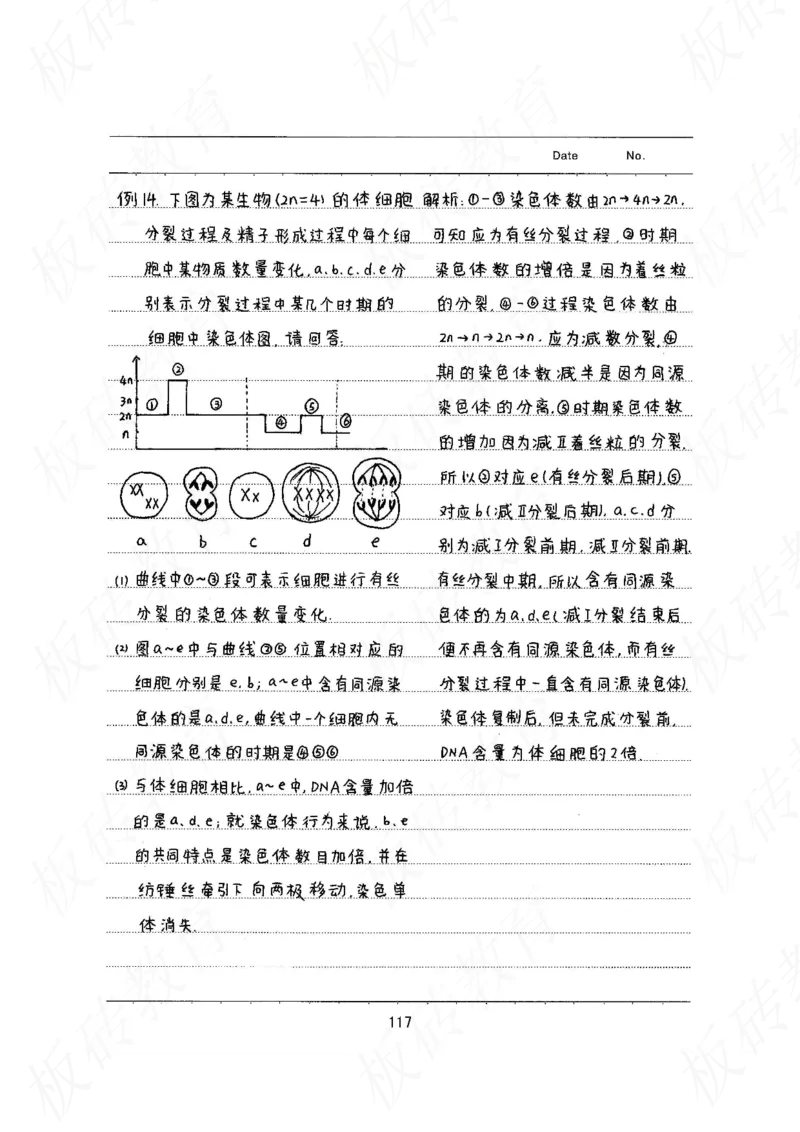 Date No.
例14. 下图为某生物(2n=4)的体细胞
分裂过程及精子形成过程中每个细
胞中某物质数量变化,a、b、c、d、e分
别表示分裂过程中某几个时期的
细胞中染色体图,请回答:
4n
3n
2n
n
① ② ③ ④ ⑤ ⑥
a b c d e
(1) 曲线中①~③段可表示细胞进行有丝
分裂的染色体数量变化.
(2) 图a~e中与曲线②⑤位置相对应的
细胞分别是e,b; a~e中含有同源染
色体的是a,d,e,曲线中一个细胞内无
同源染色体的时期是④⑤⑥
(3) 与体细胞相比,a~e中,DNA含量加倍
的是a、d、e;就染色体行为来说,b、e
的共同特点是染色体数目加倍,并在
纺锤丝牵引下向两极移动,染色单
体消失.
解析:①-③染色体数由2n→4n→2n,
可知应为有丝分裂过程,②时期
染色体数的增倍是因为着丝粒
的分裂,④-⑥过程染色体数由
2n→n→2n→n.应为减数分裂,④
期的染色体数减半是因为同源
染色体的分离,⑤时期染色体数
的增加因为减Ⅱ着丝粒的分裂.
所以②对应e(有丝分裂后期),⑤
对应b(减Ⅱ分裂后期),a.c.d分
别为减Ⅰ分裂前期,减Ⅱ分裂前期,
有丝分裂中期,所以含有同源染
色体的为a,d,e(减Ⅰ分裂结束后
便不再含有同源染色体,而有丝
分裂过程中一直含有同源染色体).
染色体复制后,但未完成分裂前,
DNA含量为体细胞的2倍.
117
板砖教育